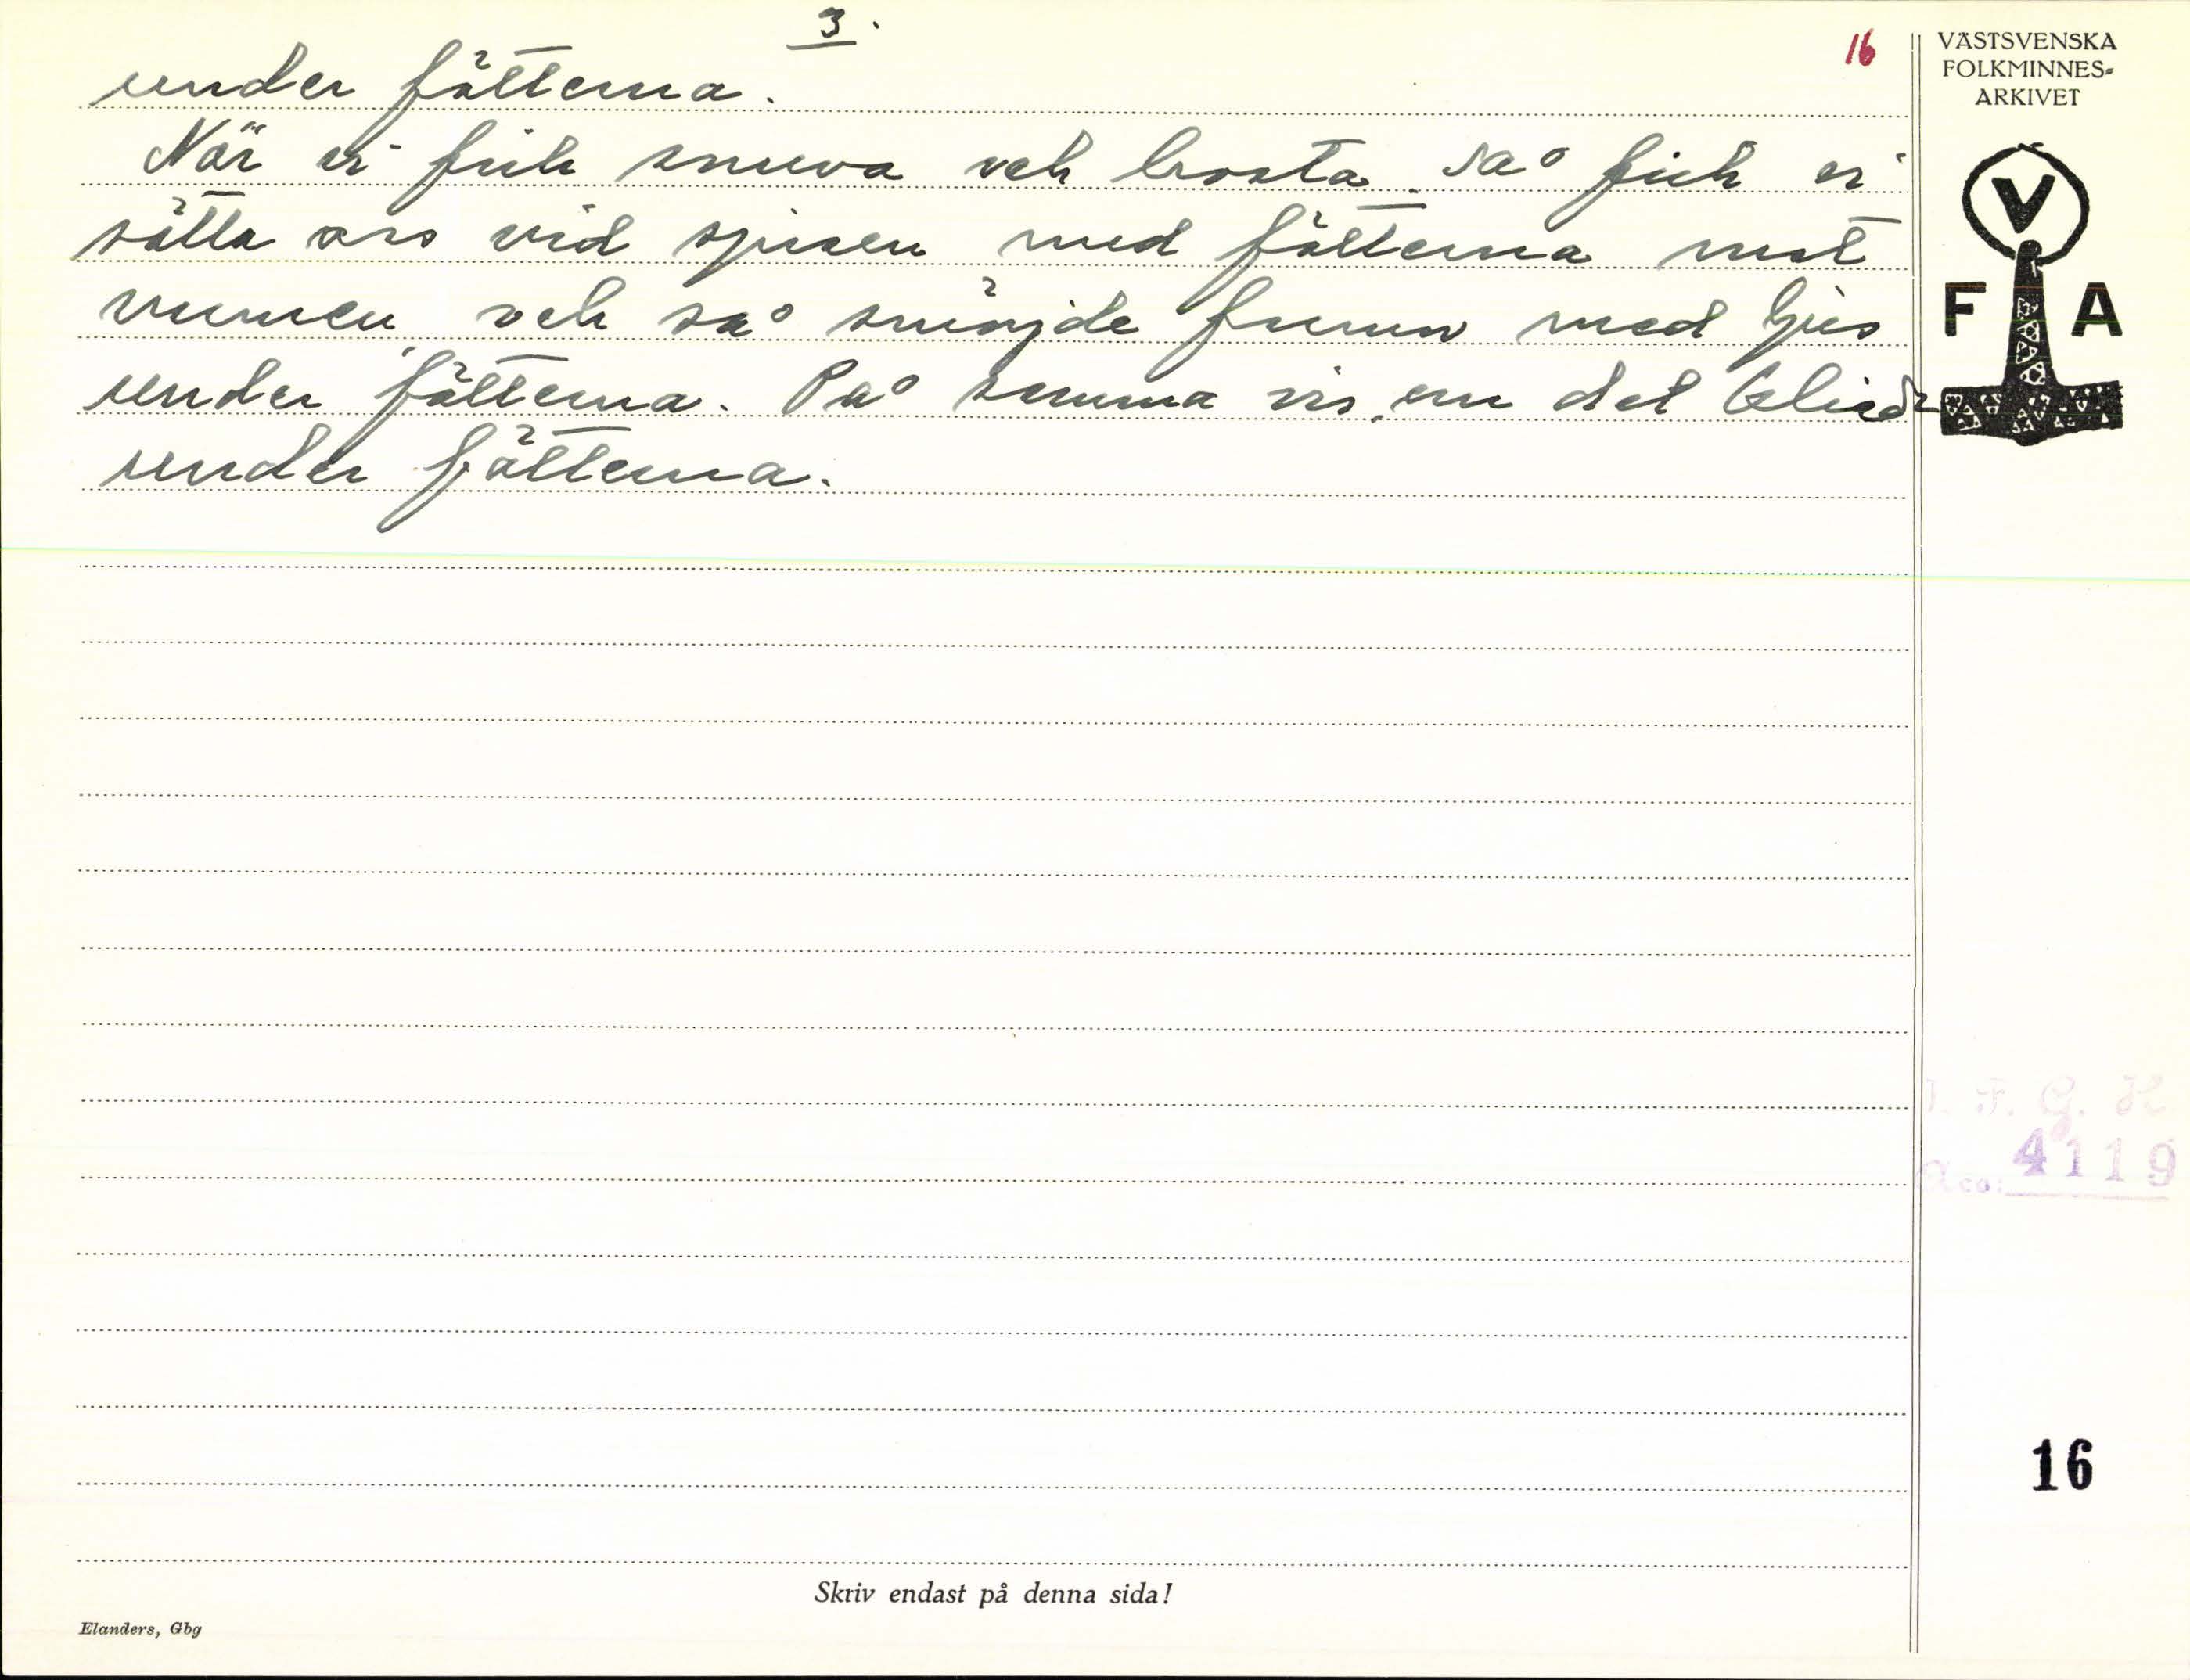 3.
16
under fötterna.
När vi fick snuva och hosta så fick vi
sätta oss vid spisen med fötterna mot
värmen och så smörjde
med ljus
under fötterna. På samma vis om det
under fötterna.
VÄSTSVENSKA
FOLKMINNES-
ARKIVET
V
F A
I. F. G. H.
Acc: 4119
16
Skriv endast på denna sida!
Elanders, Gbg